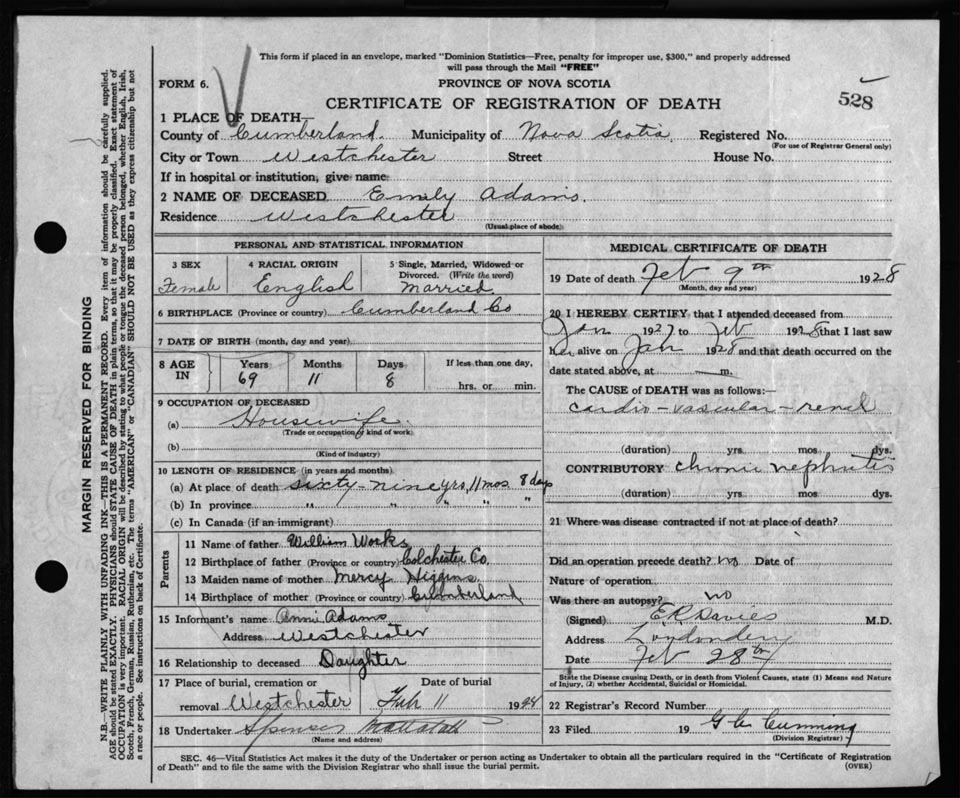 This form if placed in an envelope, marked "Dominion Statistics—Free, penalty for improper use, $300," and properly addressed
will pass through the Mail "FREE"
FORM 6.
PROVINCE OF NOVA SCOTIA
528
CERTIFICATE OF REGISTRATION OF DEATH
1 PLACE OF DEATH—
County of Cumberland. Municipality of Nova Scotia Registered No.
(For use of Registrar General only)
City or Town Westchester Street House No.
If in hospital or institution, give name
2 NAME OF DECEASED Emily Adams.
Residence Westchester
(Usual place of abode)
PERSONAL AND STATISTICAL INFORMATION
3 SEX 4 RACIAL ORIGIN 5 Single, Married, Widowed or
Divorced. (Write the word)
Female English Married
6 BIRTHPLACE (Province or country) Cumberland Co
7 DATE OF BIRTH (month, day and year)
8 AGE IN Years Months Days If less than one day,
69 11 8 hrs. or min.
9 OCCUPATION OF DECEASED
(a) Housewife
(Trade or occupation or kind of work)
(b)
(Kind of industry)
10 LENGTH OF RESIDENCE (in years and months)
(a) At place of death sixty-nine yrs, 11 mos 8 days
(b) In province " " " "
(c) In Canada (if an immigrant)
Parents
11 Name of father William Works
12 Birthplace of father (Province or country) Colchester Co.
13 Maiden name of mother Mercy Higgins
14 Birthplace of mother (Province or country) Cumberland
15 Informant's name Annie Adams
Address Westchester
16 Relationship to deceased Daughter
17 Place of burial, cremation or Date of burial
removal Westchester Feb 11 19
18 Undertaker Spencer
(Name and address)
MEDICAL CERTIFICATE OF DEATH
19 Date of death Feb 9th 1928
(Month, day and year)
20 I HEREBY CERTIFY that I attended deceased from
Jan 1927 to Feb 1928 that I last saw
her alive on Jan 1928 and that death occurred on the
date stated above, at m.
The CAUSE of DEATH was as follows:—
cardio-vascular-renal
(duration) yrs. mos dys.
CONTRIBUTORY chronic nephritis
(duration) yrs. mos dys.
21 Where was disease contracted if not at place of death?
Did an operation precede death? No Date of
Nature of operation
Was there an autopsy? no
(Signed) E R Davies M.D.
Address
Date Feb 28th
State the Disease causing Death, or in death from Violent Causes, state (1) Means and Nature
of Injury, (2) whether Accidental, Suicidal or Homicidal.
22 Registrar's Record Number
23 Filed 19 Cumming
(Division Registrar)
SEC. 46—Vital Statistics Act makes it the duty of the Undertaker or person acting as Undertaker to obtain all the particulars required in the "Certificate of Registration
of Death" and to file the same with the Division Registrar who shall issue the burial permit.
(OVER)
MARGIN RESERVED FOR BINDING
N.B.—WRITE PLAINLY WITH UNFADING INK—THIS IS A PERMANENT RECORD. Every item of information should be carefully supplied.
AGE should be stated EXACTLY. PHYSICIANS should STATE CAUSE OF DEATH in plain terms, so that it may be properly classified. Exact statement of
OCCUPATION is very important. RACIAL ORIGIN will be described by stating to what people or tongue the deceased person belonged, whether English, Irish,
Scotch, French, German, Russian, Ruthenian, etc. The terms "AMERICAN" or "CANADIAN" SHOULD NOT BE USED as they express citizenship but not
a race or people. See instructions on back of Certificate.